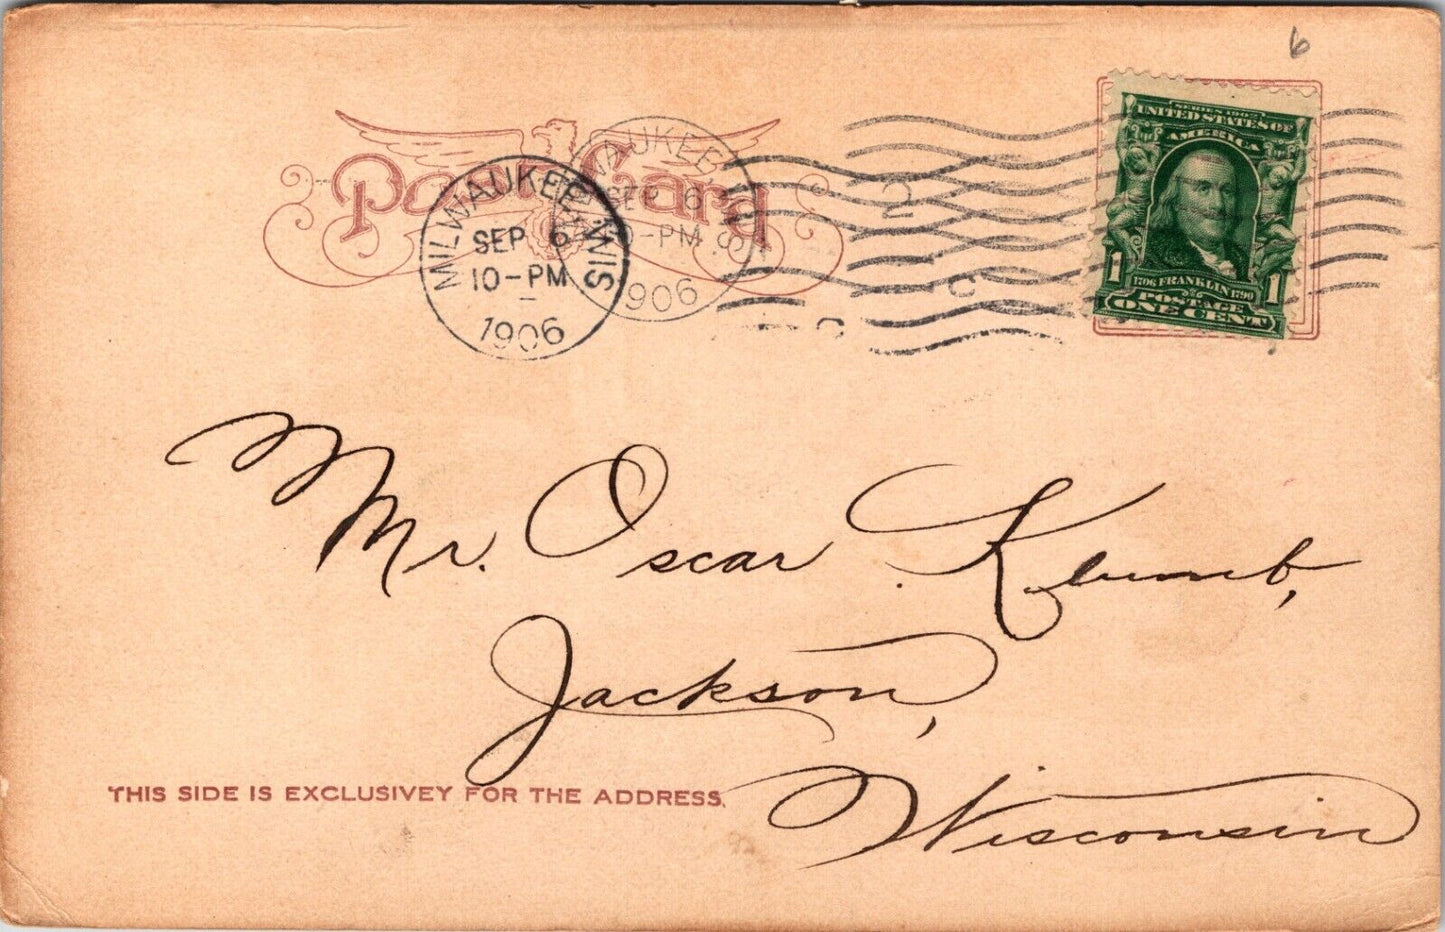 6
Post Card
MILWAUKEE WIS
SEP 6
10-PM
1906
WAUKEE WIS.
SEP 6
0-PM
1906
2
C
C
SERIES 1902
UNITED STATES OF
AMERICA
1 1706 FRANKLIN 1790 1
POSTAGE
ONE CENT
Mr. Oscar Klumb,
Jackson,
Wisconsin
THIS SIDE IS EXCLUSIVEY FOR THE ADDRESS.